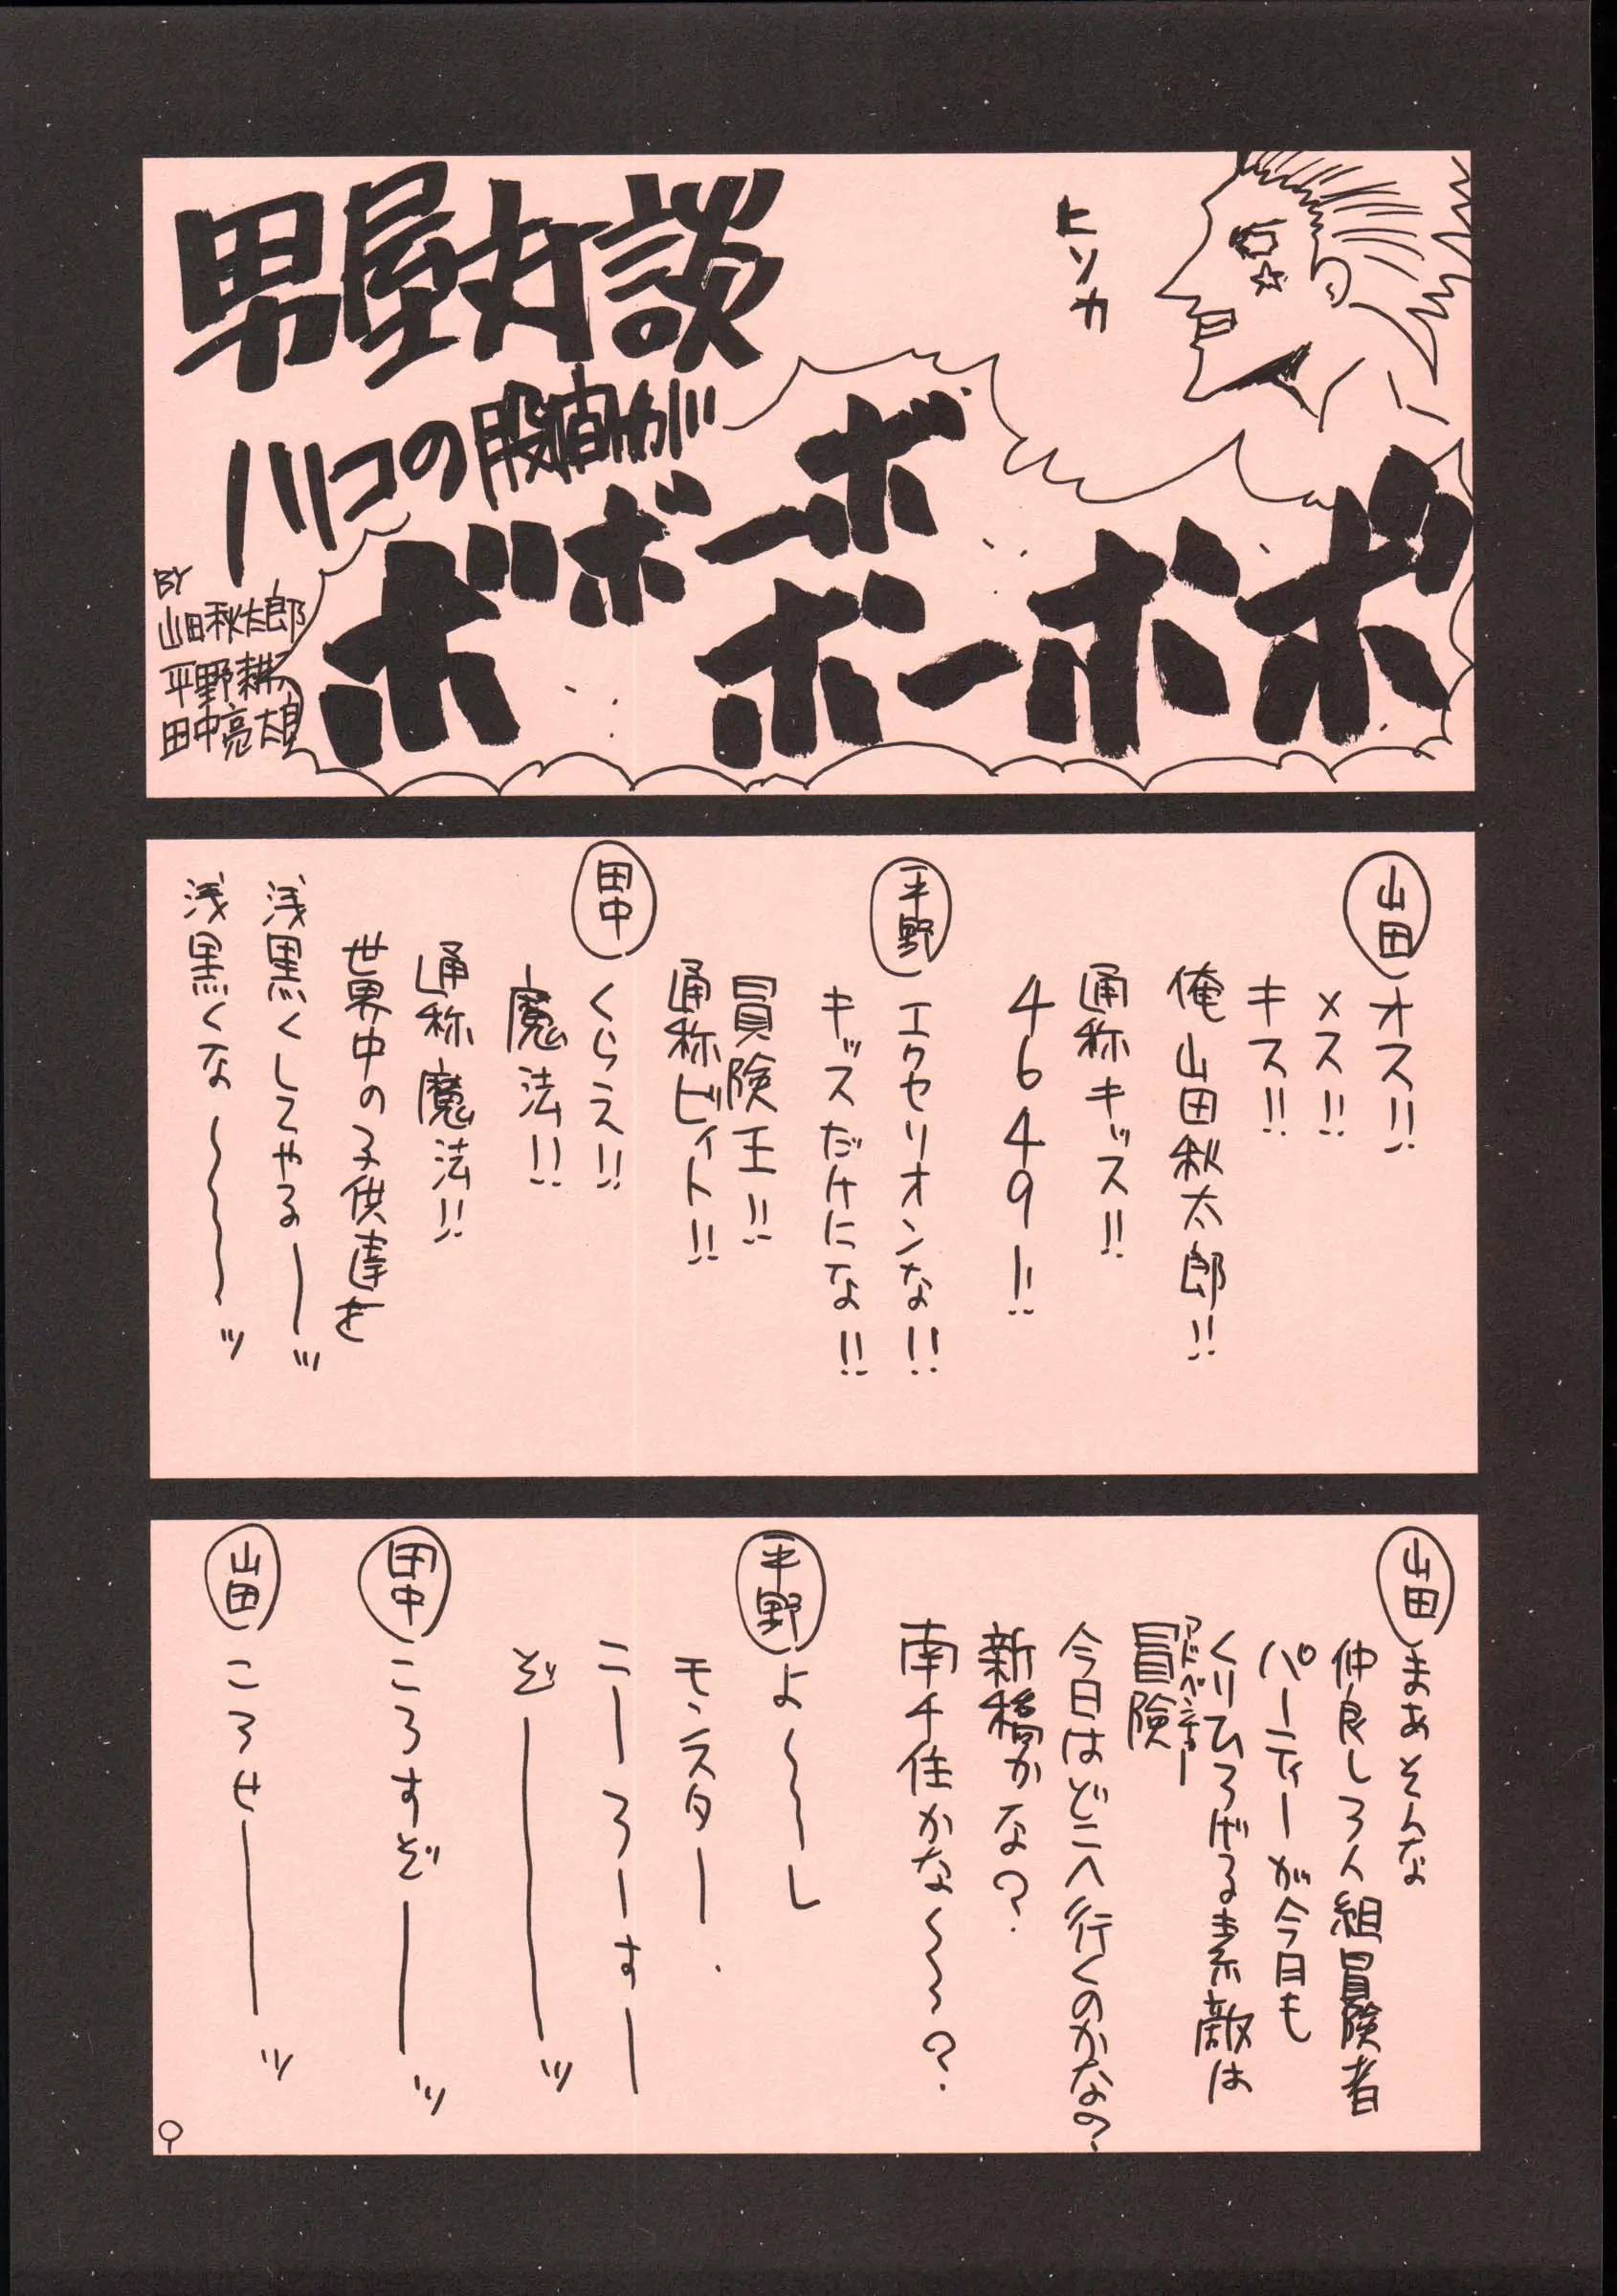 男屋対談
ノリコの股間が
ボボボーボ
ボーボボ
ヒソカ
BY
山田秋太郎
平野耕太
田中亮太
山田
オス!!
メス!!
キス!!
俺山田秋太郎!!
通称キッス!!
4649ー!!
平野
エクセリオンな!!
キッスだけにな!!
冒険王!!
通称ビィト!!
田中
くらえ!!
魔法!!
通称魔法!!
世界中の子供達を
浅黒くしてやるーッ
浅黒くな〜〜〜ッ
山田
まあそんな
仲良し3人組冒険者
パーティーが今日も
くりひろげる素敵は
冒険
アドベンチャー
今日はどこへ行くのかな?
新橋かな?
南千住かな〜〜?
平野
よ〜〜し
モンスター
こーろーすー
ぞーーーッ
田中
ころすぞーーッ
山田
ころせーーーッ